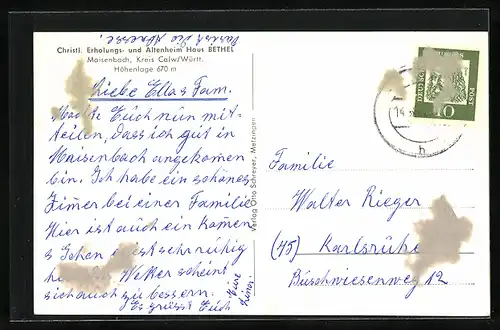 Christl. Erholungs- und Altenheim Haus BETHEL
Maisenbach, Kreis Calw/Württ.
Höhenlage 670 m
Liebe Ella u. Fam.
Möchte Euch nun mit-
teilen, dass ich gut in
Maisenbach angekomen
bin. Ich habe ein schönes
Zimer bei einer Familie
Hier ist auch ein Komen
u Gehen ist sehr ruhig
Wetter scheint
sich auch zu bessern.
Es grüsst Euch
Eure
Verlag Otto Schreyer, Metzingen
DEUTSCHE
POST
10
14
h
Familie
Walter Rieger
(75) Karlsruhe
Buschwiesenweg 12